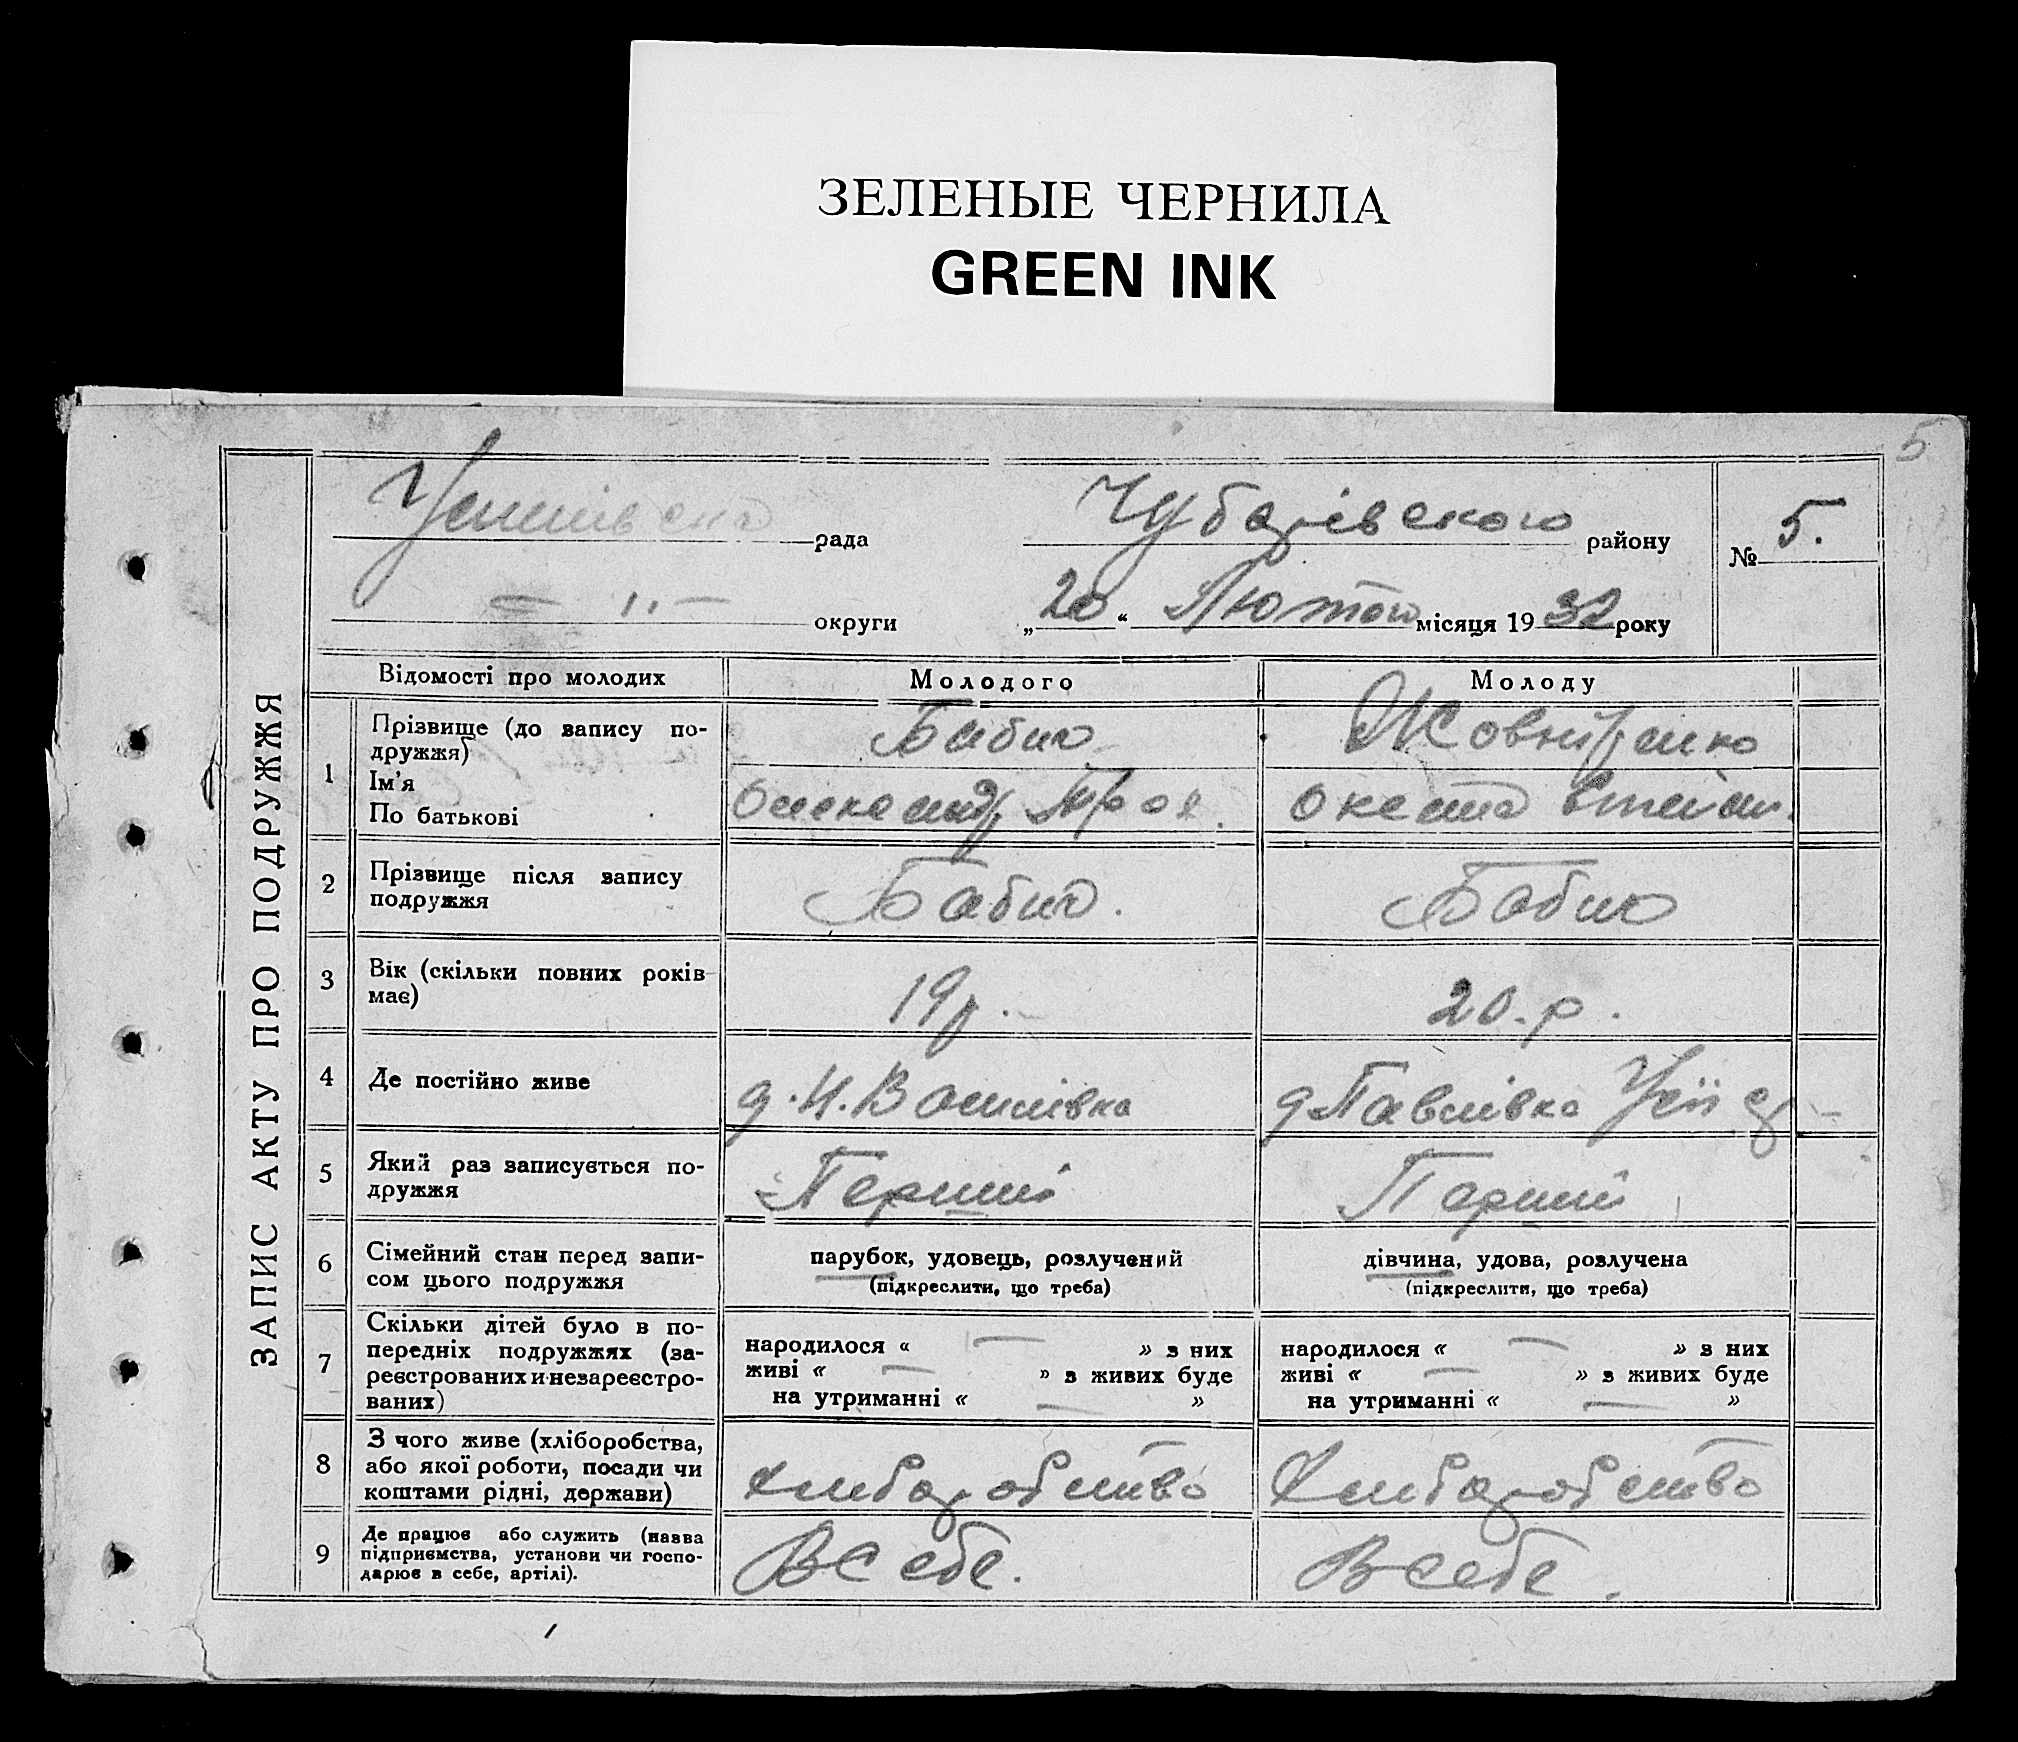 ЗЕЛЕНЫЕ ЧЕРНИЛА
GREEN INK
5
ЗАПИС АКТУ ПРО ПОДРУЖЖЯ
рада
Чубарівского району
№ 5.
— „ — округи
„20“ Лютого місяця 1932 року
Відомості про молодих
Молодого
Молоду
1
Прізвище (до запису по-
дружжя)
Ім'я
По батькові
Бабич
Олександр
Оксана
2
Прізвище після запису
подружжя
Бабич.
Бабич
3
Вік (скільки повних років
має)
19 р.
20. р.
4
Де постійно живе
д. Н. Василівка
д Павлівка
5
Який раз записується по-
дружжя
Перший
Перший
6
Сімейний стан перед запи-
сом цього подружжя
парубок, удовець, розлучений
(підкреслити, що треба)
дівчина, удова, розлучена
(підкреслити, що треба)
7
Скільки дітей було в по-
передніх подружжях (за-
реєстрованих и незареєстро-
ваних)
народилося « — » з них
живі « — » з живих буде
на утриманні « — »
народилося « — » з них
живі « — » з живих буде
на утриманні « — »
8
З чого живе (хліборобства,
або якої роботи, посади чи
коштами рідні, держави)
Хлиборобство
Хлиборобство
9
Де працює або служить (назва
підприємства, установи чи госпо-
дарює в себе, артілі).
В себе.
В себе.